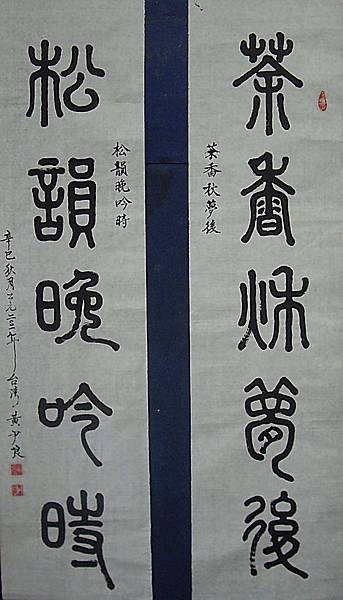 茶香秋夢後
茶香秋夢後
松韻晚吟時
松韻晚吟時
辛巳秋月
台湾黃少良